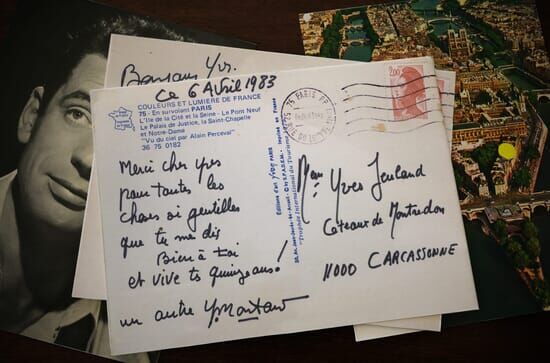 Bonjour Yves
Ce 6 Avril 1983
COULEURS ET LUMIERE DE FRANCE
75 - En survolant PARIS
L'Ile de la Cité et la Seine - Le Pont Neuf
Le Palais de Justice, la Sainte-Chapelle
et Notre-Dame
"Vu du ciel par Alain Perceval"
36 75 0182
Merci cher Yves
pour toutes les
choses si gentilles
que tu me dis
Bien à toi
et vive tes quinze ans!
un autre Y. Montand
Editions d'art YVON PARIS
75 PARIS
2,00
Yves
Coteaux de Montredon
11000 CARCASSONNE